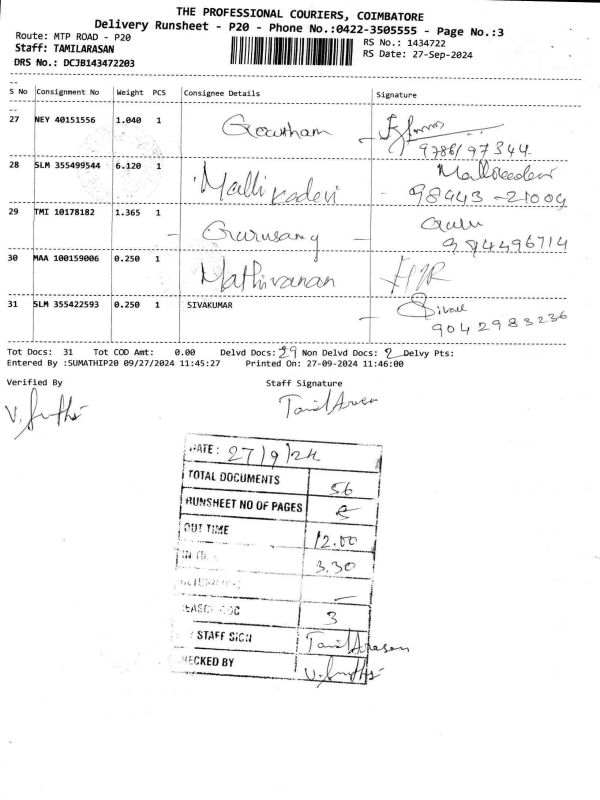 THE PROFESSIONAL COURIERS, COIMBATORE
Delivery Runsheet - P20 - Phone No.:0422-3505555 - Page No.:3
Route: MTP ROAD - P20
RS No.: 1434722
Staff: TAMILARASAN
RS Date: 27-Sep-2024
DRS No.: DCJB143472203
S No Consignment No Weight PCS Consignee Details Signature
27 NEY 40151556 1.040 1 Gowtham
9786197344
28 SLM 355499544 6.120 1 Mallikadevi Mallikadevi
98943-21009
29 TMI 10178182 1.365 1 Gurusamy Guru
9814496714
30 MAA 100159006 0.250 1 Mathivanan
31 SLM 355422593 0.250 1 SIVAKUMAR
9042983236
Tot Docs: 31 Tot COD Amt: 0.00 Delvd Docs: 29 Non Delvd Docs: 2 Delvy Pts:
Entered By :SUMATHIP20 09/27/2024 11:45:27 Printed On: 27-09-2024 11:46:00
Verified By Staff Signature
TamilArasan
DATE: 27/9/24
TOTAL DOCUMENTS 56
RUNSHEET NO OF PAGES
OUT TIME 12.00
3.30
3
STAFF SIGN TamilArasan
CHECKED BY